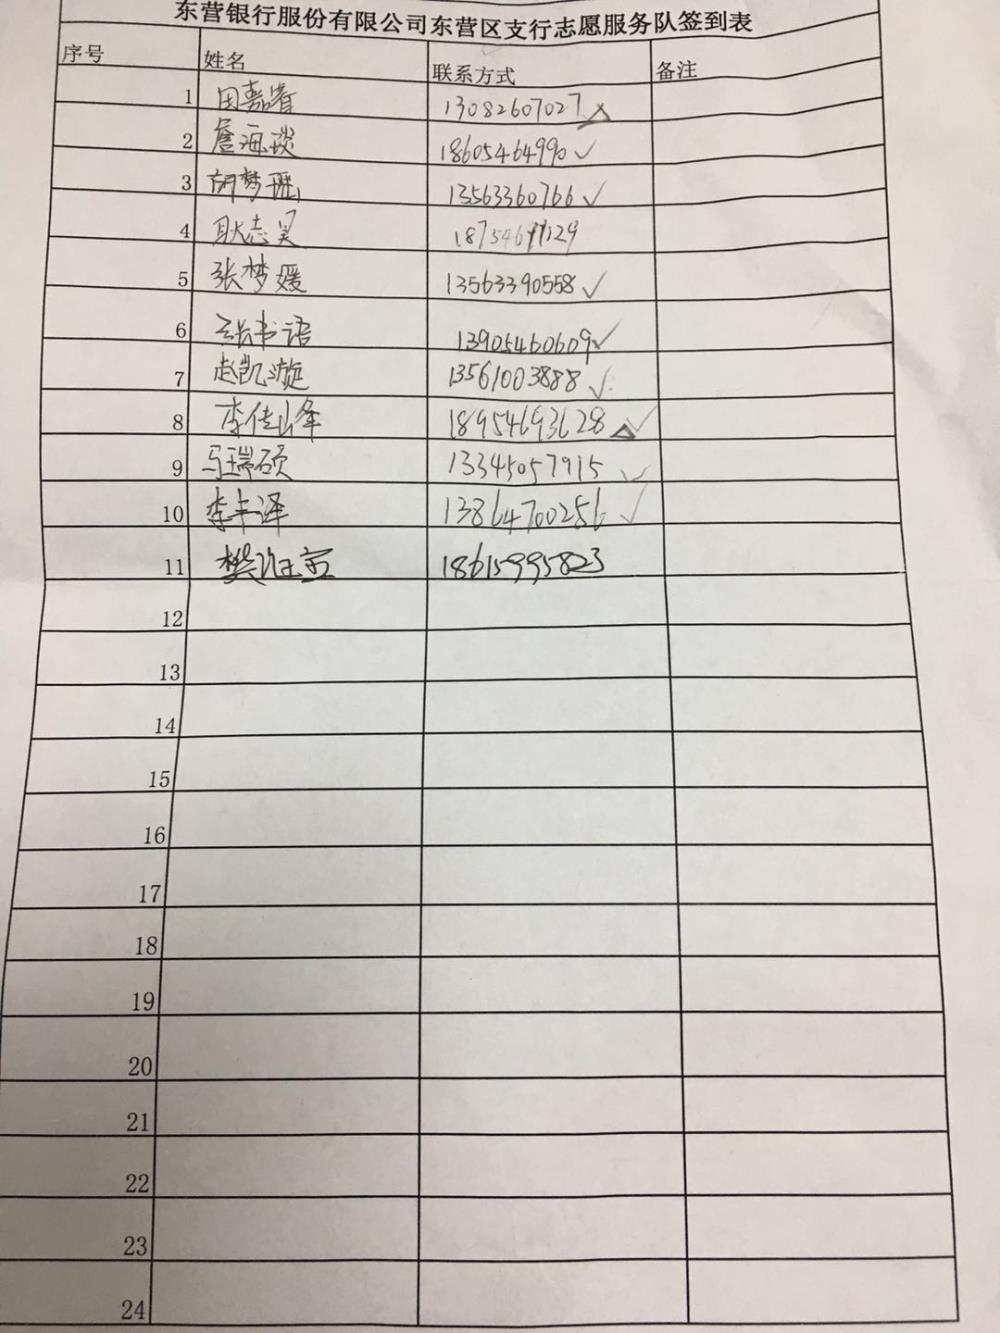 东营银行股份有限公司东营区支行志愿服务队签到表
序号 姓名 联系方式 备注
1 田嘉睿 13082607027
2 詹海琰 18605464990 ✓
3 胡梦 13563360766 ✓
4 耿志昊 1875461129
5 张梦媛 13563390558 ✓
6 张书语 13905460609 ✓
7 赵凯漩 13561003888 ✓
8 李佳峰 18954693628 ✓
9 马瑞硕 13345057915 ✓
10 李丰泽 13864700256 ✓
11 樊 18615995823
12
13
14
15
16
17
18
19
20
21
22
23
24